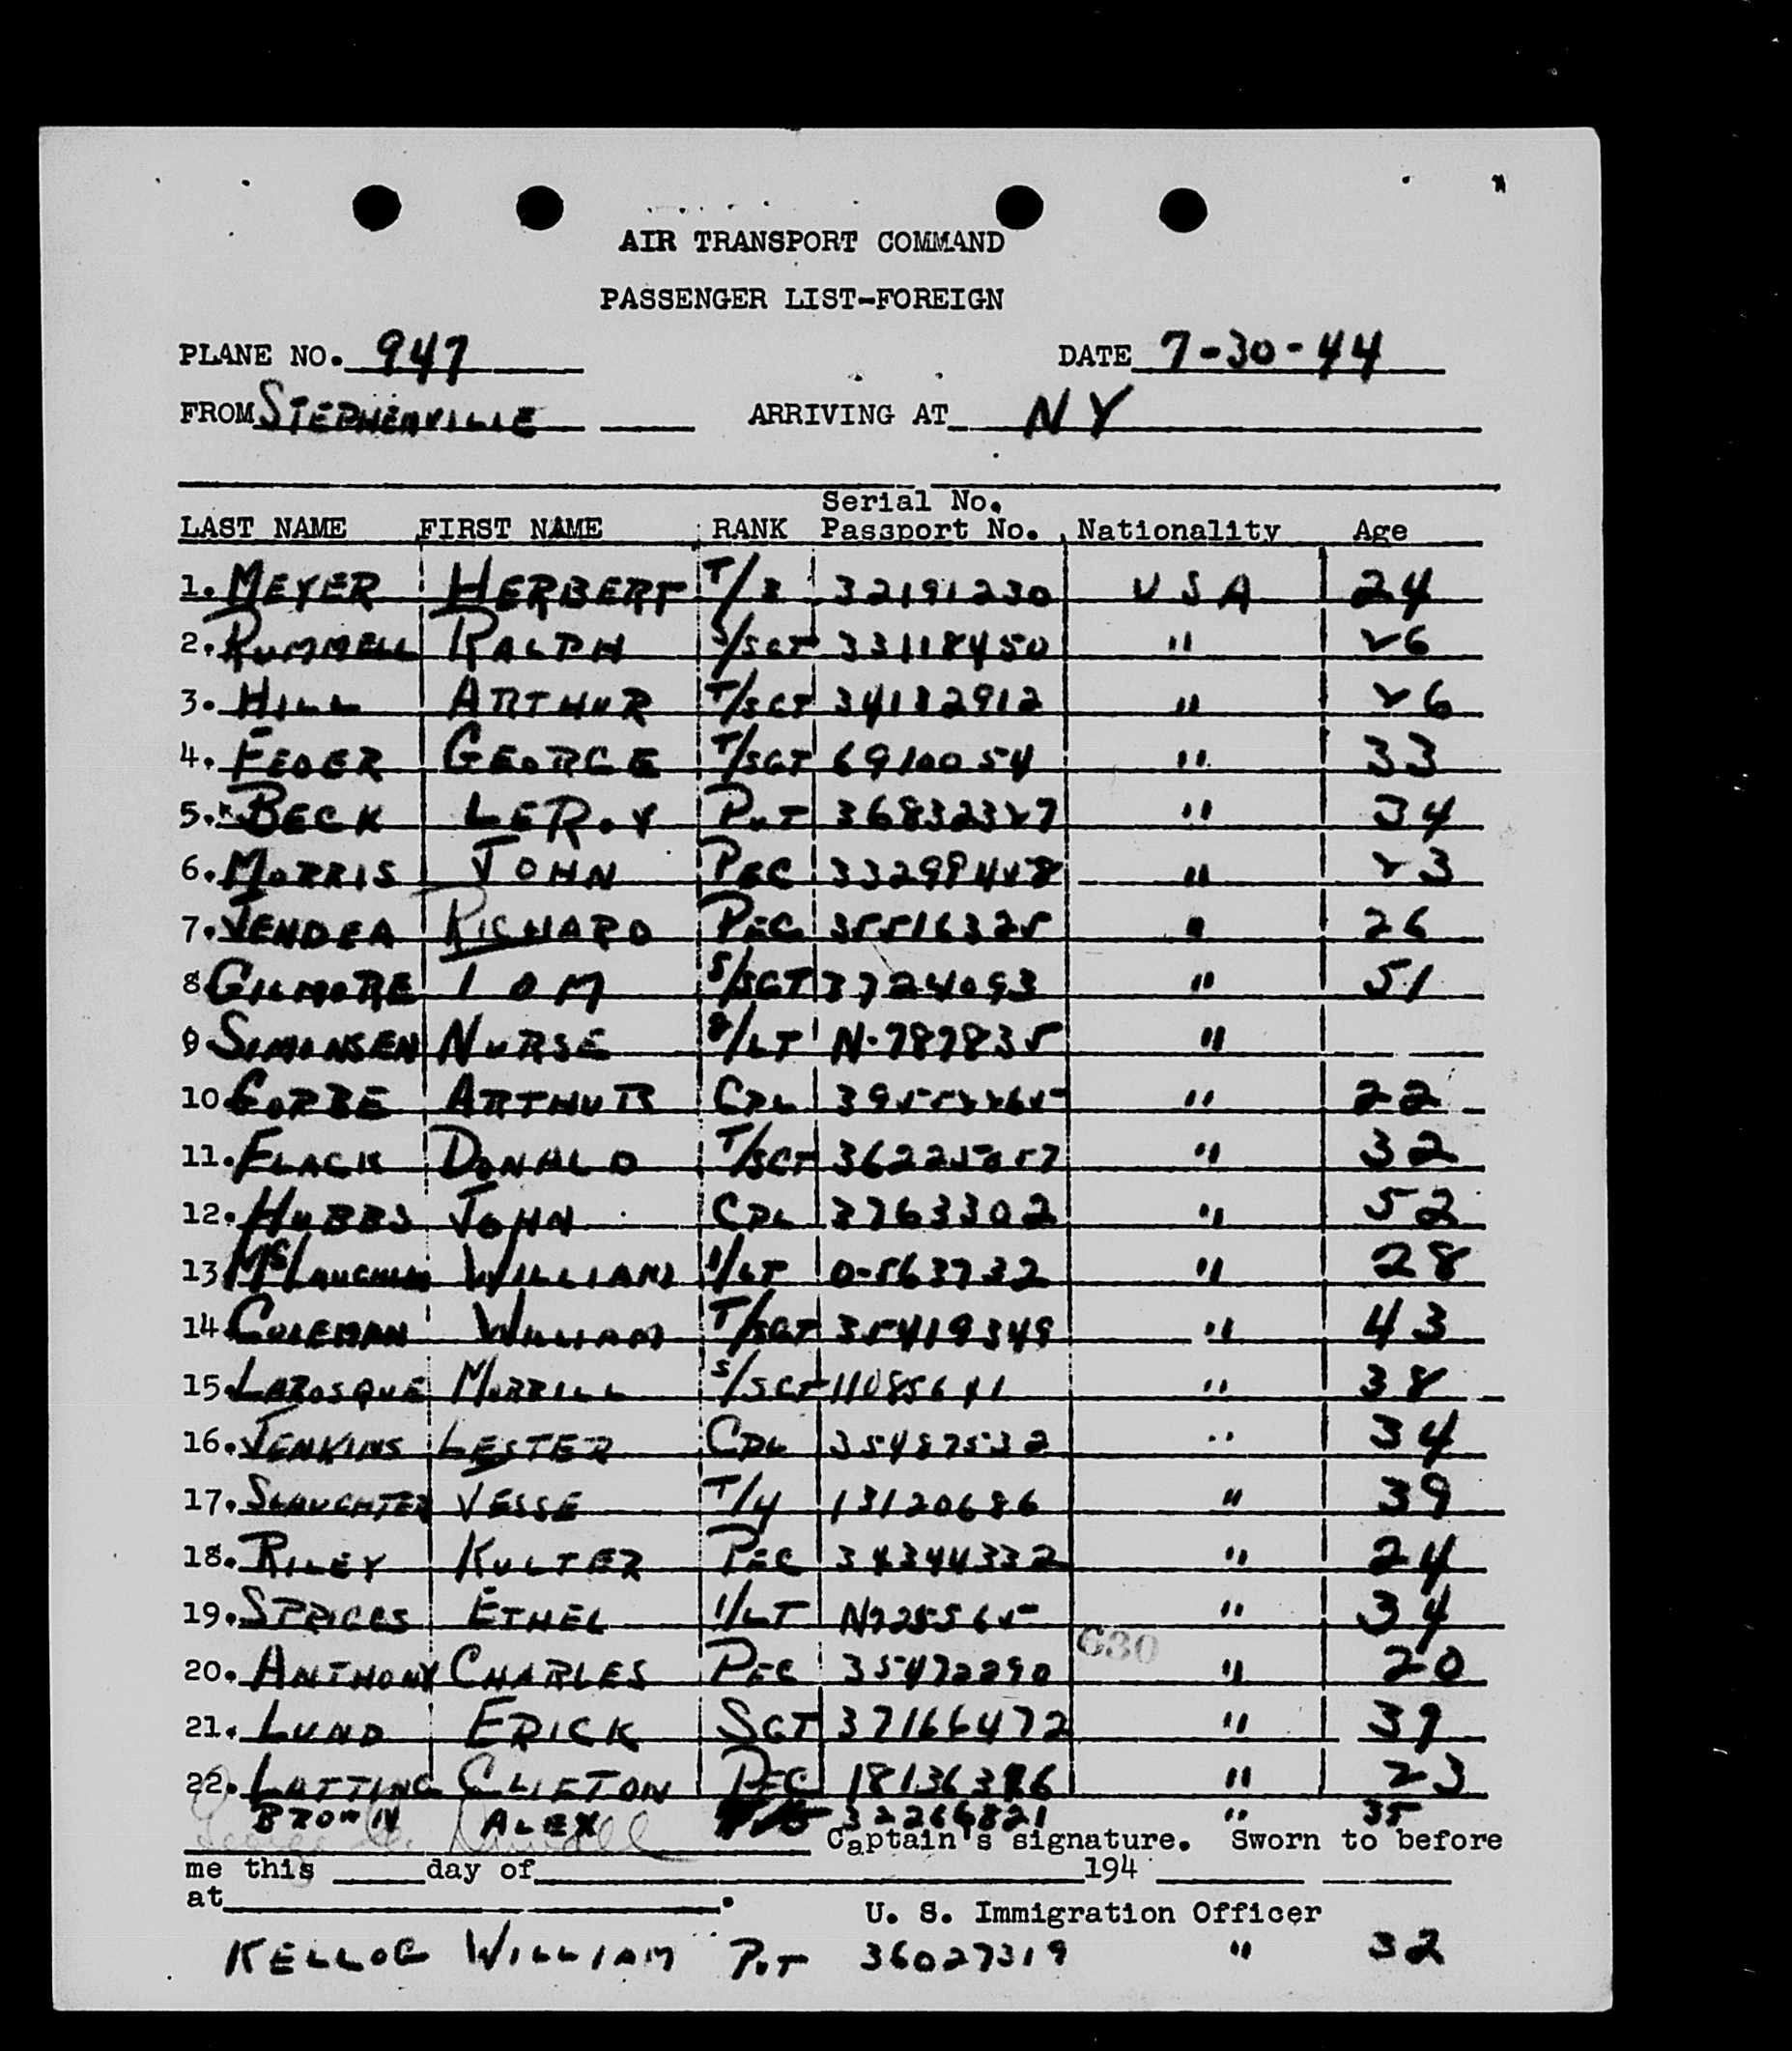 AIR TRANSPORT COMMAND
PASSENGER LIST-FOREIGN
PLANE NO. 947 DATE 7-30-44
FROM STEPHENVILLE ARRIVING AT NY
Serial No.
LAST NAME FIRST NAME RANK Passport No. Nationality Age
1. MEYER HERBERT T/3 32191230 USA 24
2. RUMMELL RALPH S/SGT 33118450 " 26
3. HILL ARTHUR T/SGT 34132912 " 26
4. FEDER GEORGE T/SGT 6910054 " 33
5. BECK LEROY PVT 36832327 " 34
6. MORRIS JOHN PFC " 23
7. JENDEA RICHARD PFC 35516325 " 26
8 GILMORE TOM S/SGT 3724093 " 51
9 SIMONSEN NURSE 2/LT N-787835 "
10 GORBE ARTHUR CPL " 22
11. FLACK DONALD T/SGT 36225057 " 32
12. HUBBS JOHN CPL 3763302 " 52
13 McLAUGHLIN WILLIAM 1/LT 0-563732 " 28
14 COLEMAN WILLIAM T/SGT 35419349 " 43
15. LAROSQUE MORRILL S/SGT 11085641 " 38
16. JENKINS LESTER CPL 35487532 " 34
17. SLAUGHTER JESSE T/4 13120686 " 39
18. RILEY KULTER PFC 34344332 " 24
19. SPRIGGS ETHEL 1/LT N725565 " 34
C30
20. ANTHONY CHARLES PFC 35472290 " 20
21. LUND ERICK SGT 37166472 " 39
22. LATTING CLIFTON PFC 18136386 " 23
BROWN ALEX 32266821 " 35
Captain's signature. Sworn to before
me this day of 194
at .
U. S. Immigration Officer
KELLOG WILLIAM PVT 36027319 " 32